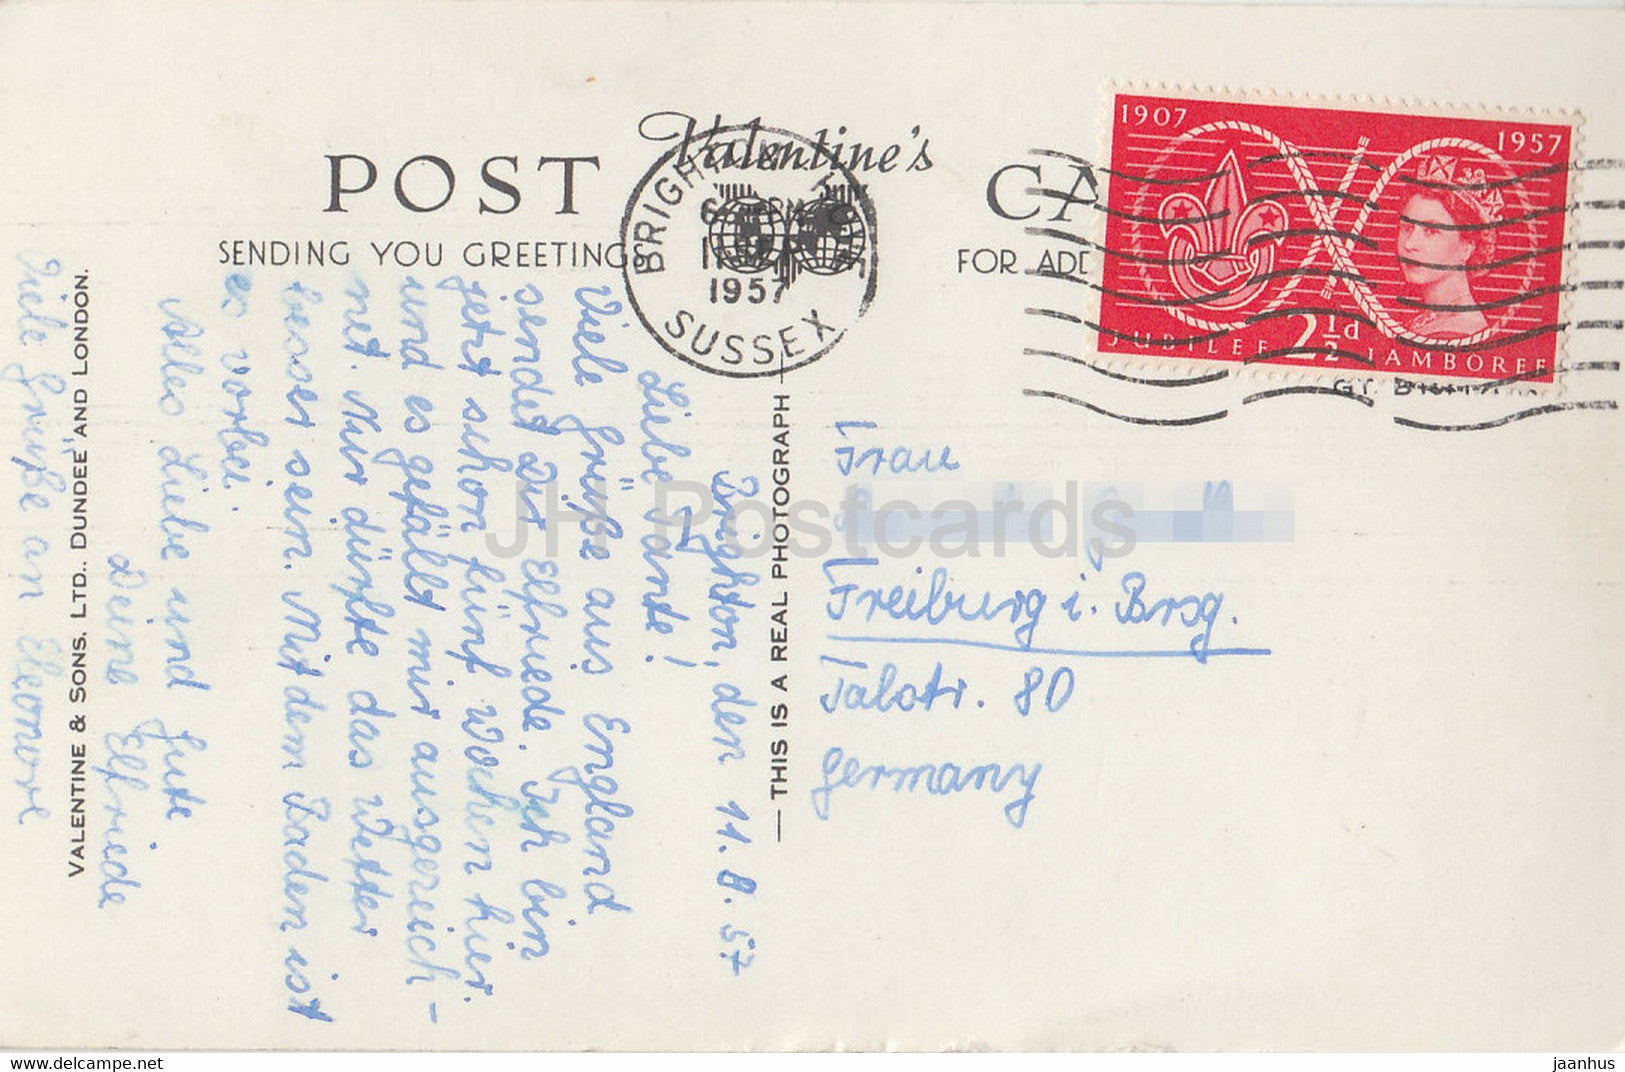 POST CA
Valentine's
SENDING YOU GREETINGS
FOR ADD
BRIGHTON & HOVE
SUSSEX
1957
1907
1957
JUBILEE 2½d JAMBOREE
Brighton, den 11.8.57
Liebe Tante!
Viele Grüße aus England
sendet Dir Elfriede. Ich bin
jetzt schon fünf Wochen hier
und es gefällt mir ausgereich-
net. Nur dürfte das Wetter
besser sein. Mit dem Baden ist
es vorbei.
Alles Liebe und Gute
Deine Elfriede
Viele Grüße an Eleonore
VALENTINE & SONS, LTD., DUNDEE AND LONDON.
— THIS IS A REAL PHOTOGRAPH —
Frau
Freiburg i. Brsg.
Talstr. 80
Germany
JH Postcards
www.delcampe.net
jaanhus